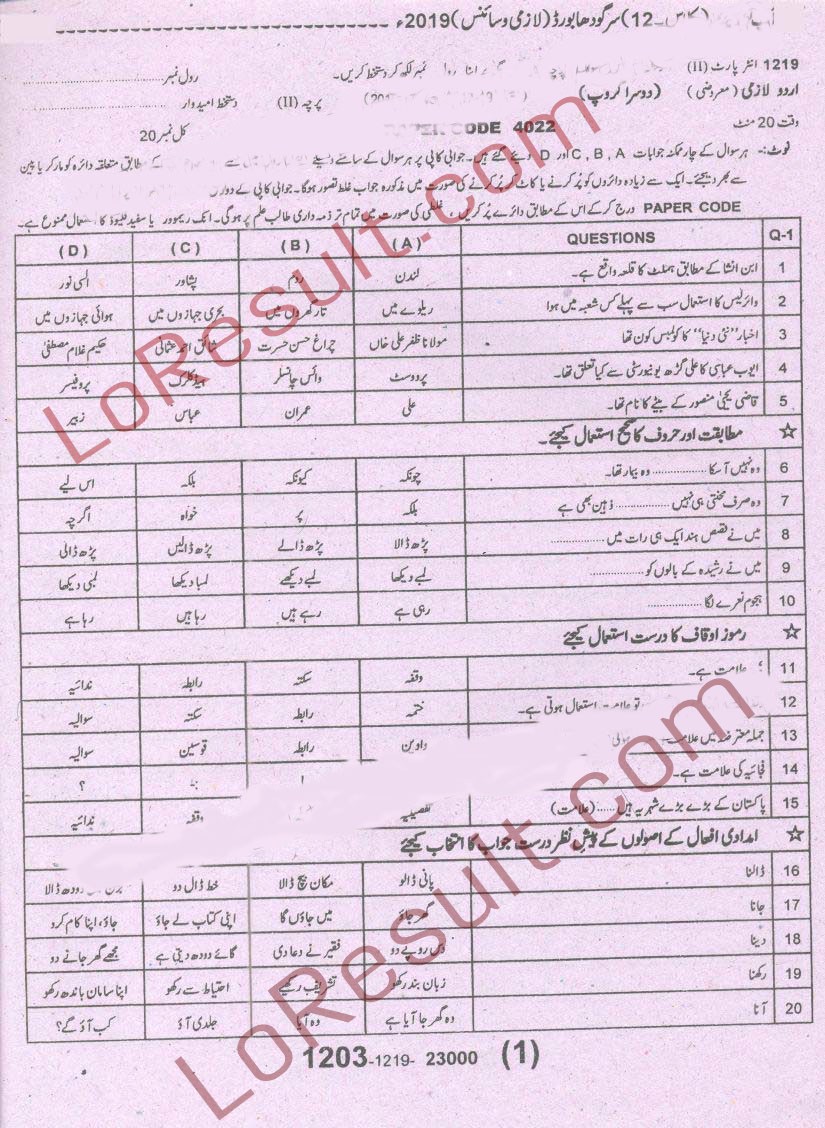 (کلاس ۔ 12) سرگودھا بورڈ (لازمی و سائنس) 2019ء
1219 انٹر پارٹ (II) نمبر لکھ کر دستخط کریں۔ رول نمبر
اردو لازمی (معروضی) (دوسرا گروپ) پرچہ (II) دستخط امیدوار
وقت 20 منٹ CODE 4022 کل نمبر 20
نوٹ:۔ ہر سوال کے چار ممکنہ جوابات A , B , C اور D دیئے گئے ہیں۔ جوابی کاپی پر ہر سوال کے سامنے دیئے کے مطابق متعلقہ دائرہ کو مارکر یا پین
سے بھر دیجئے۔ ایک سے زیادہ دائروں کو پُر کرنے یا کاٹ کر پُر کرنے کی صورت میں مذکورہ جواب غلط تصور ہوگا۔ جوابی کاپی کے دونوں
PAPER CODE درج کر کے اس کے مطابق دائرے پُر کریں ، غلطی کی صورت میں تمام تر ذمہ داری طالب علم پر ہوگی۔ انک ریموور یا سفید فلیوڈ کا استعمال ممنوع ہے۔
Q-1 QUESTIONS (A) (B) (C) (D)
1 ابن انشا کے مطابق ہملٹ کا قلعہ واقع ہے۔ لندن روم پشاور السی نور
2 وائرلیس کا استعمال سب سے پہلے کس شعبہ میں ہوا ریلوے میں تار گھروں میں بحری جہازوں میں ہوائی جہازوں میں
3 اخبار ’’نئی دنیا‘‘ کا کولمبس کون تھا مولانا ظفر علی خاں چراغ حسن حسرت شائق احمد عثمانی حکیم غلام مصطفیٰ
4 ایوب عباسی کا علی گڑھ یونیورسٹی سے کیا تعلق تھا۔ پرووسٹ وائس چانسلر ہیڈ کلرک پروفیسر
5 قاضی یحییٰ منصور کے بیٹے کا نام تھا۔ علی عمران عباس زبیر
☆ مطابقت اور حروف کا صحیح استعمال کیجئے۔
6 وہ نہیں آ سکا ............ وہ بیمار تھا۔ چونکہ کیونکہ بلکہ اس لیے
7 وہ صرف محنتی ہی نہیں ............ ذہین بھی ہے بلکہ پر خواہ اگرچہ
8 میں نے قصص ہند ایک ہی رات میں ............ پڑھ ڈالا پڑھ ڈالے پڑھ ڈالیں پڑھ ڈالی
9 میں نے رشیدہ کے بالوں کو ............ لمبے دیکھا لمبے دیکھے لمبا دیکھا لمبی دیکھا
10 ہجوم نعرے لگا ............ رہی ہے رہے ہیں رہا ہیں رہا ہے
☆ رموز اوقاف کا درست استعمال کیجئے
11 ؛ علامت ہے۔ وقفہ سکتہ رابطہ ندائیہ
12 تو علامت ۔ استعمال ہوتی ہے۔ ختمہ رابطہ سکتہ سوالیہ
13 جملہ معترضہ میں علامت واوین رابطہ قوسین سوالیہ
14 فجائیہ کی علامت ہے۔ ! ؟
15 پاکستان کے بڑے بڑے شہر یہ ہیں ...... (علامت) تفصیلیہ وقفہ ندائیہ
☆ امدادی افعال کے اصولوں کے پیشِ نظر درست جواب کا انتخاب کیجئے
16 ڈالنا پانی ڈالو مکان بیچ ڈالا خط ڈال دو دودھ ڈالا
17 جانا گھر جاؤ میں جاؤں گا اپنی کتاب لے جاؤ جاؤ، اپنا کام کرو
18 دینا دس روپے دو فقیر نے دعا دی گائے دودھ دیتی ہے مجھے گھر جانے دو
19 رکھنا زبان بند رکھو تشریف رکھیے احتیاط سے رکھو اپنا سامان باندھ رکھو
20 آنا وہ گھر جا آیا ہے وہ آیا جلدی آؤ کب آؤ گے؟
1203-1219- 23000 (1)
LoResult.com
LoResult.com